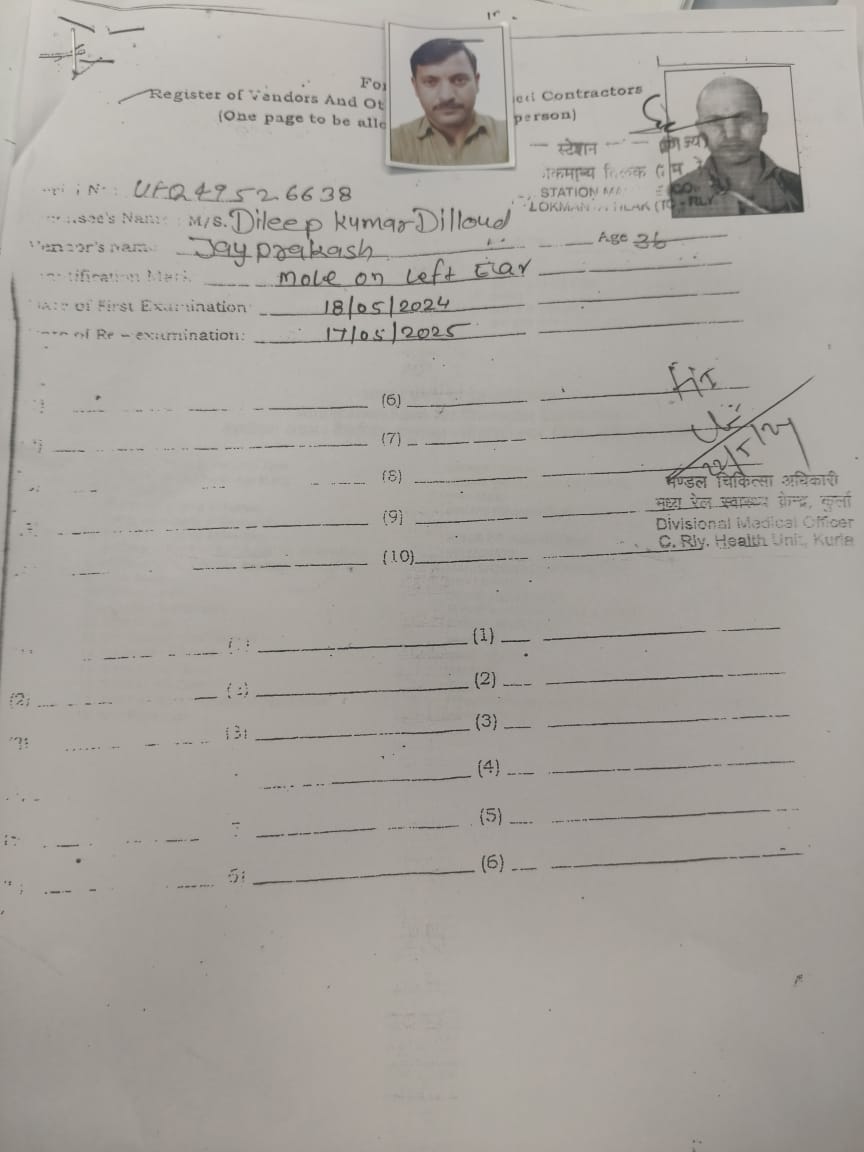 For
Register of Vendors And Ot
Contractors
(One page to be allo
person)
स्टेशन
तिलक
STATION MA
LOKMAN TILAK (T)
UFQ49526638
Name: M/s. Dileep Kumar Dilloud
Vendor's name Jay prakash Age 36
Mark mole on Left Ear
of First Examination 18/05/2024
of Re-examination: 17/05/2025
(6)
Fit
(7)
(8)
22/5/24
(9)
(10)
मण्डल चिकित्सा अधिकारी
मध्य रेल स्वास्थ्य केन्द्र, कुर्ला
Divisional Medical Officer
C. Rly. Health Unit, Kurla
(1)
(2) (2)
(3) (3)
(4)
(5)
(6)